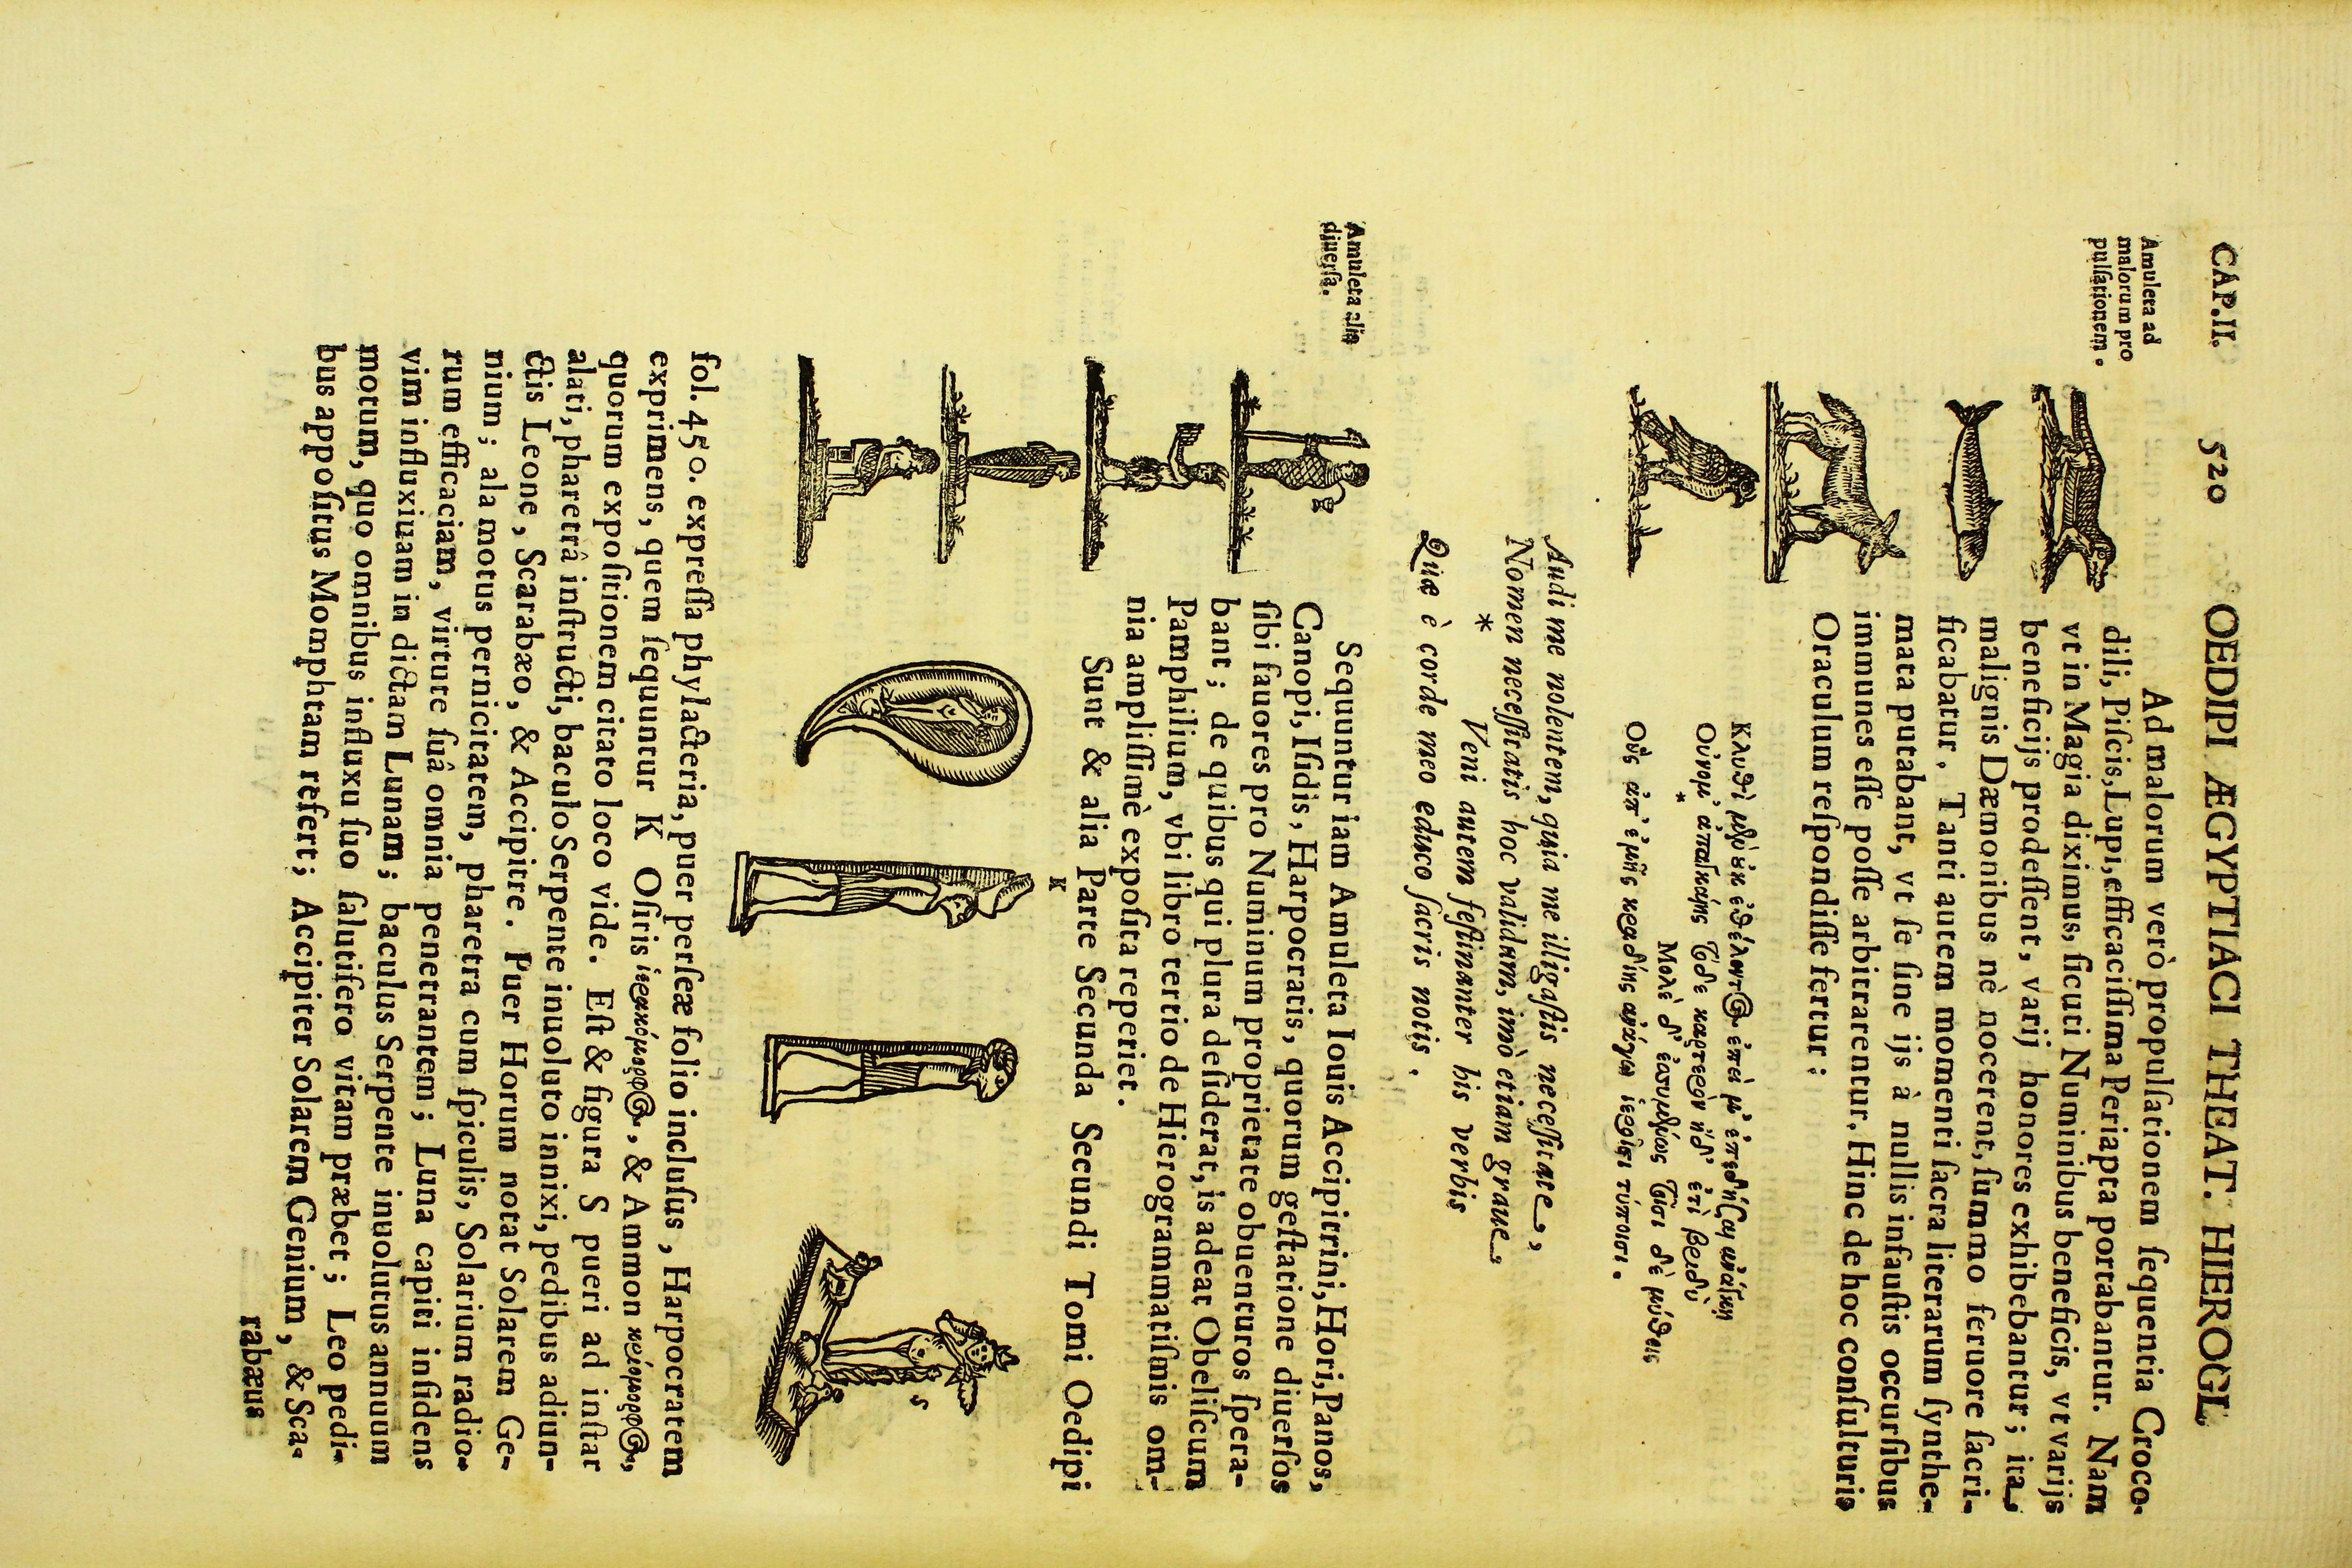 CAP. II. 520 OEDIPI ÆGYPTIACI THEAT. HIEROGL
Amuleta ad
malorum pro
pulſationem.
Ad malorum verò propulſationem ſequentia Croco-
dili, Piſcis, Lupi, efficaciſſima Periapta portabantur. Nam
vt in Magia diximus, ſicuti Numinibus beneficis, vt varijs
beneficijs prodeſſent, varij honores exhibebantur; ita
malignis Dæmonibus nè nocerent, ſummo feruore ſacri-
ficabatur. Tanti autem momenti ſacra literarum ſynthe-
mata putabant, vt ſe ſine ijs à nullis infauſtis occurſibus
immunes eſſe poſſe arbitrarentur. Hinc de hoc conſulturis
Oraculum reſpondiſſe fertur:
Κλυθί μευ ἐκ ἐθέλοντος ἐπεὶ μ' ἐπεδήσαν ἀνάγκη
Οὔνομ' ἀναγκαίης τόδε καρτερὸν ἠδ' ἔτι βριθὺ
*
Μολὲ δ' ἐσσυμένως τοῖσι δὲ μύθοις
Οὓς ἀπ' ἐμῆς κραδίης ἀνάγω ἱεροῖσι τύποισι.
Audi me nolentem, quia me illigaſtis neceſſitate,
Nomen neceſſitatis hoc validum, imò etiam graue,
* Veni autem feſtinanter his verbis
Quæ è corde meo educo ſacris notis.
Amuleta alia
diuerſa.
Sequuntur iam Amuleta Iouis Accipitrini, Hori, Panos,
Canopi, Iſidis, Harpocratis, quorum geſtatione diuerſos
ſibi fauores pro Numinum proprietate obuenturos ſpera-
bant; de quibus qui plura deſiderat, is adeat Obeliſcum
Pamphilium, vbi libro tertio de Hierogrammatiſmis om-
nia ampliſſimè expoſita reperiet.
Sunt & alia Parte Secunda Secundi Tomi Oedipi
K
S
fol. 450. expreſſa phylacteria, puer perſeæ folio incluſus, Harpocratem
exprimens, quem ſequuntur K Oſiris ἱερακόμορφος, & Ammon κριόμορφος,
quorum expoſitionem citato loco vide. Eſt & figura S pueri ad inſtar
alati, pharetrâ inſtructi, baculo Serpente inuoluto innixi, pedibus adiun-
ctis Leone, Scarabæo, & Accipitre. Puer Horum notat Solarem Ge-
nium; ala motus pernicitatem, pharetra cum ſpiculis, Solarium radio-
rum efficaciam, virtute ſuâ omnia penetrantem; Luna capiti inſidens
vim influxiuam in dictam Lunam; baculus Serpente inuolutus annuum
motum, quo omnibus influxu ſuo ſalutifero vitam præbet; Leo pedi-
bus appoſitus Momphtam refert; Accipiter Solarem Genium, & Sca-
rabæus